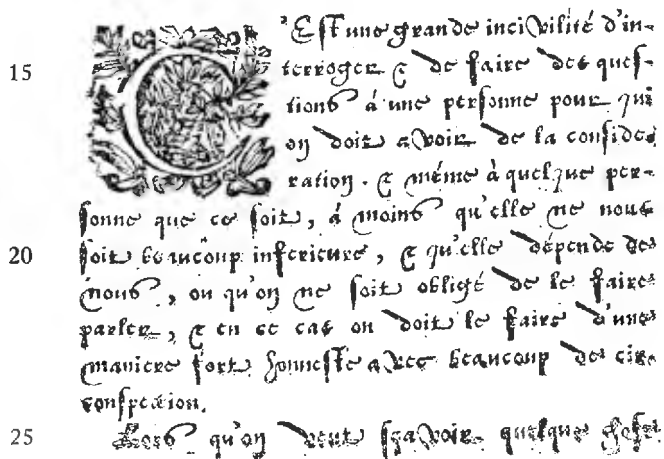 C'Est une grande incivilité d'in-
15 terroger & de faire des ques-
tions à une personne pour qui
on doit avoir de la conside-
ration. & méme à quelque per-
sonne que ce soit, à moins qu'elle ne nous
20 soit beaucoup inferieure, & qu'elle dépende de
nous, ou qu'on ne soit obligé de le faire
parler, & en ce cas on doit le faire d'une
maniere fort honneste avec beaucoup de cir-
conspection.
25 Lors qu'on veut sçavoir quelque chose